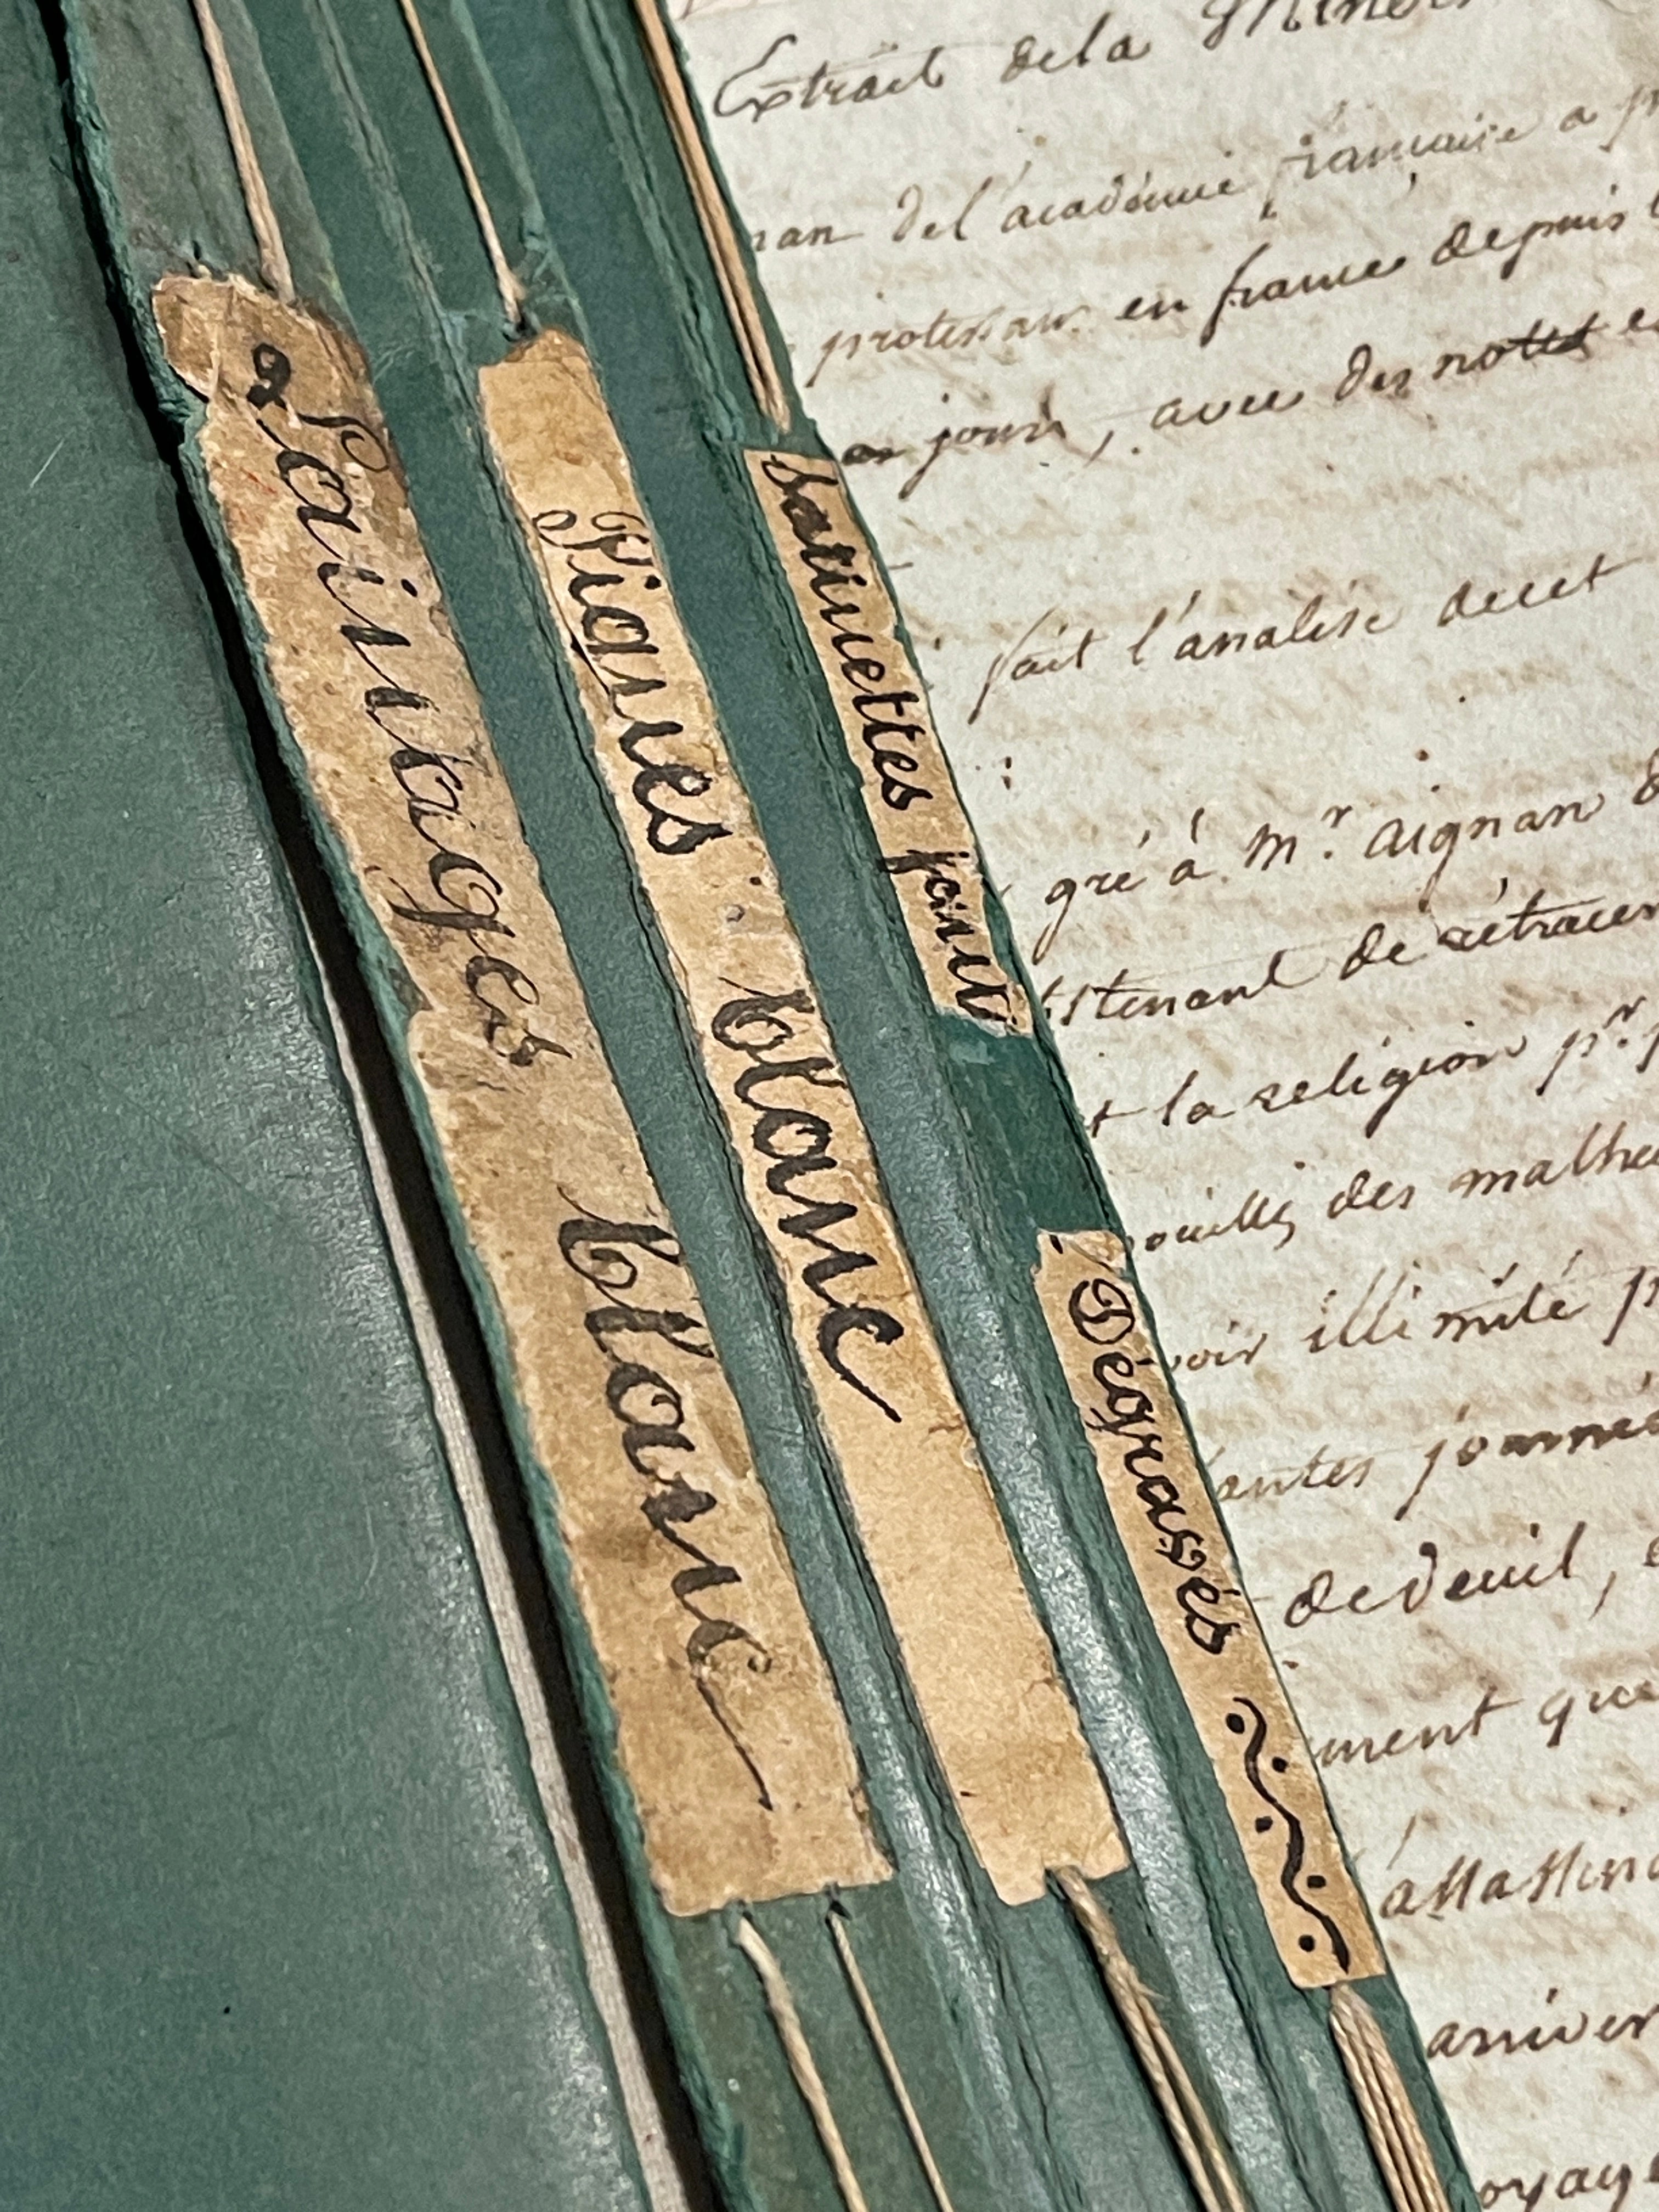 Lainages blanc
Pianes blanc
Satinettes joint
Dégrasés
Extrait dela
nan del'académie française a
protestans en france depuis
en jours, avec des notes
fait l'analise decet
gré à Mr. aignan
de rétracer
la religion pr.
des malheu
voir illimité
antes journé
dedeuil,
ment que
assassina
arriver